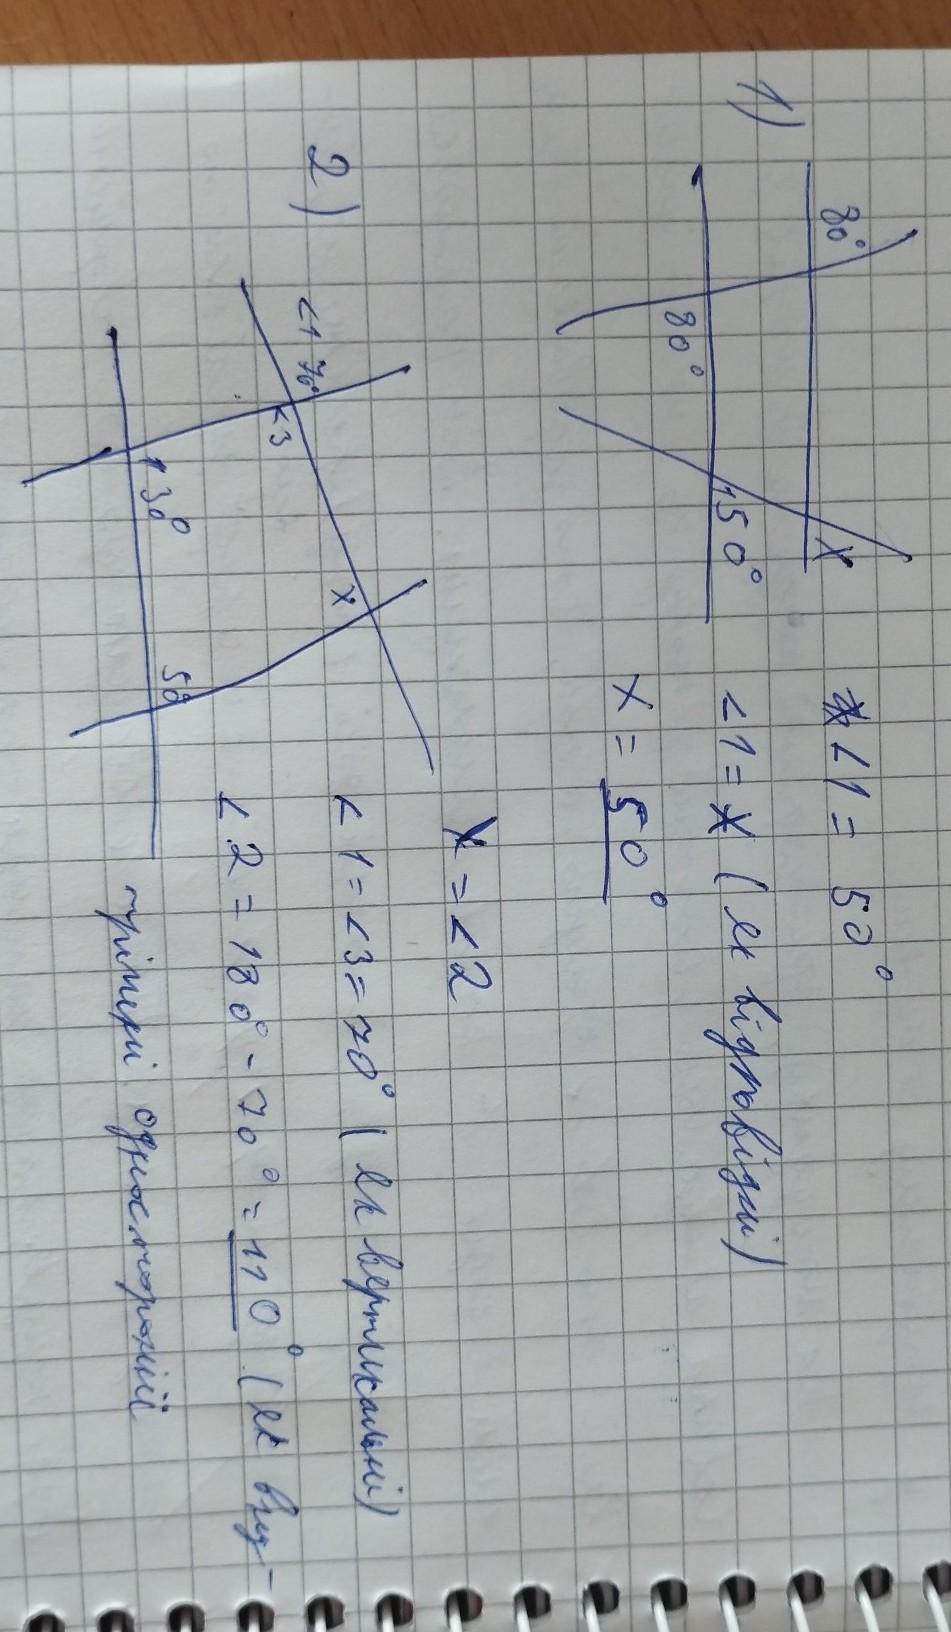 1)
80°
80°
1 50°
x
<1 = 50°
<1 = x (як відповідні)
x = 50°
2)
<1 70°
<3
130°
x
50
x = <2
<1 = <3 = 70° (як вертикальні)
<2 = 180° - 70° = 110° (як внут-
трішні односторонні